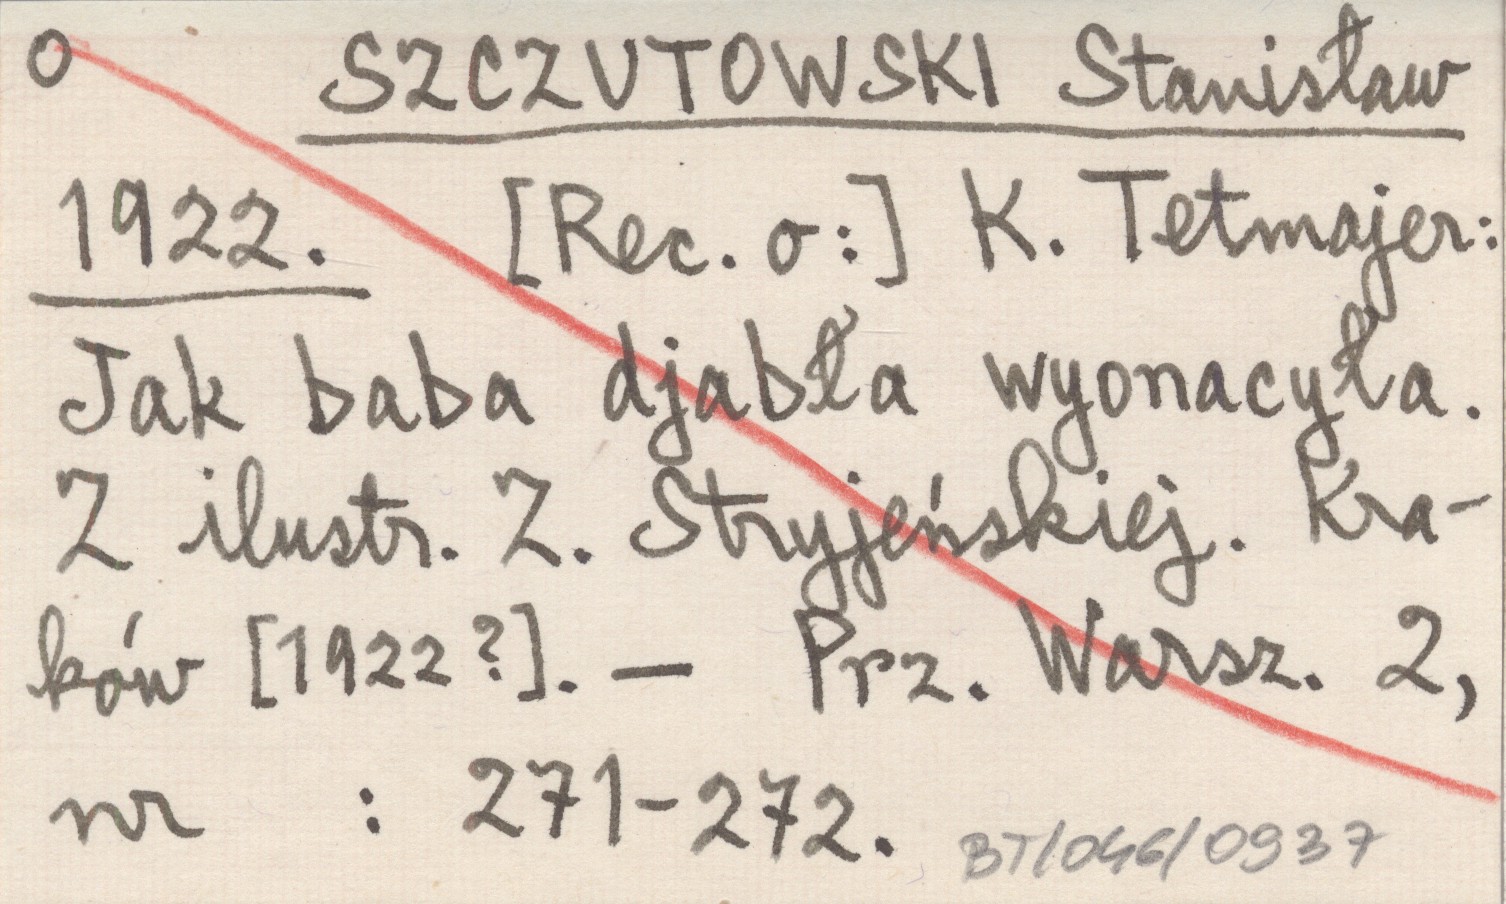 o SZCZUTOWSKI Stanisław
1922. [Rec. o:] K. Tetmajer:
Jak baba djabła wyonacyła.
Z ilustr. Z. Stryjeńskiej. Kra-
ków [1922?]. — Prz. Warsz. 2,
nr : 271-272.
BT/046/0937